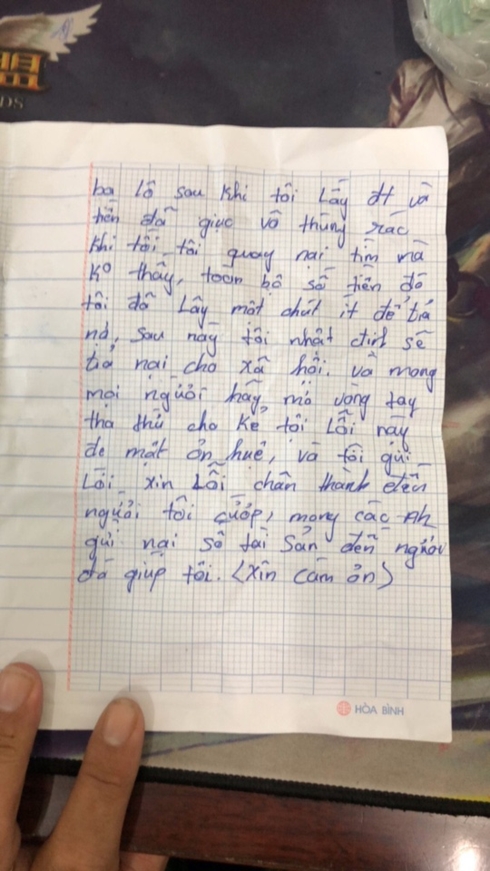 ba lô sau khi tôi lấy đt và
tiền đã giục vô thùng rác
khi tối tôi quay nai tìm mà
ko thấy, toàn bộ số tiền đó
tôi đã lấy một chút ít để trả
nợ, sau này tôi nhất định sẽ
trả nai cho xã hôi. và mong
mọi người hãy mở vòng tay
tha thứ cho kẻ tôi lỗi này
de mất ơn huê, và tôi gửi
Lời xin Lỗi chân thành đến
người tôi cướp, mong các Ah
gửi nai số tài sản đến người
đó giúp tôi. (Xin cảm ơn)
HÒA BÌNH
DS